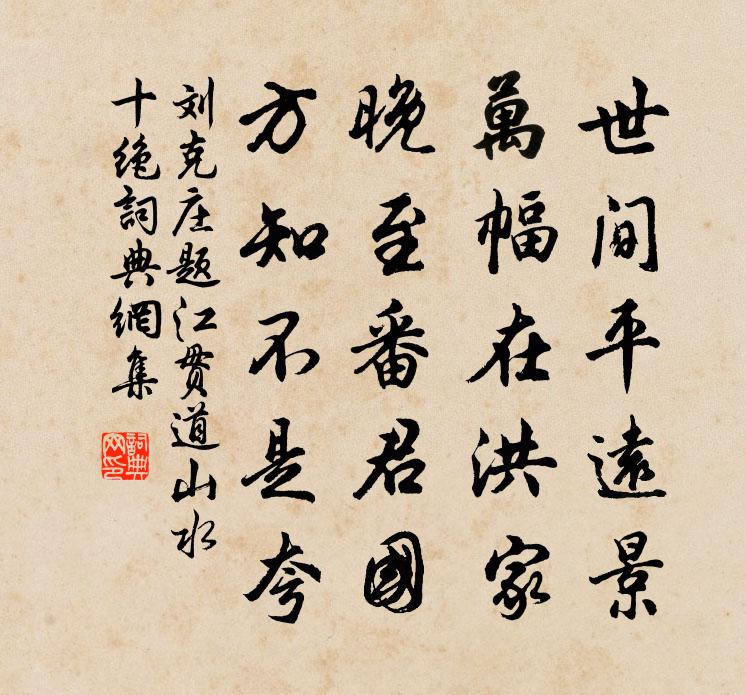 世間平遠景
萬幅在洪家
晚至番君國
方知不是夸
刘克庄题江贯道山水
十绝詞典網集
詞典网印